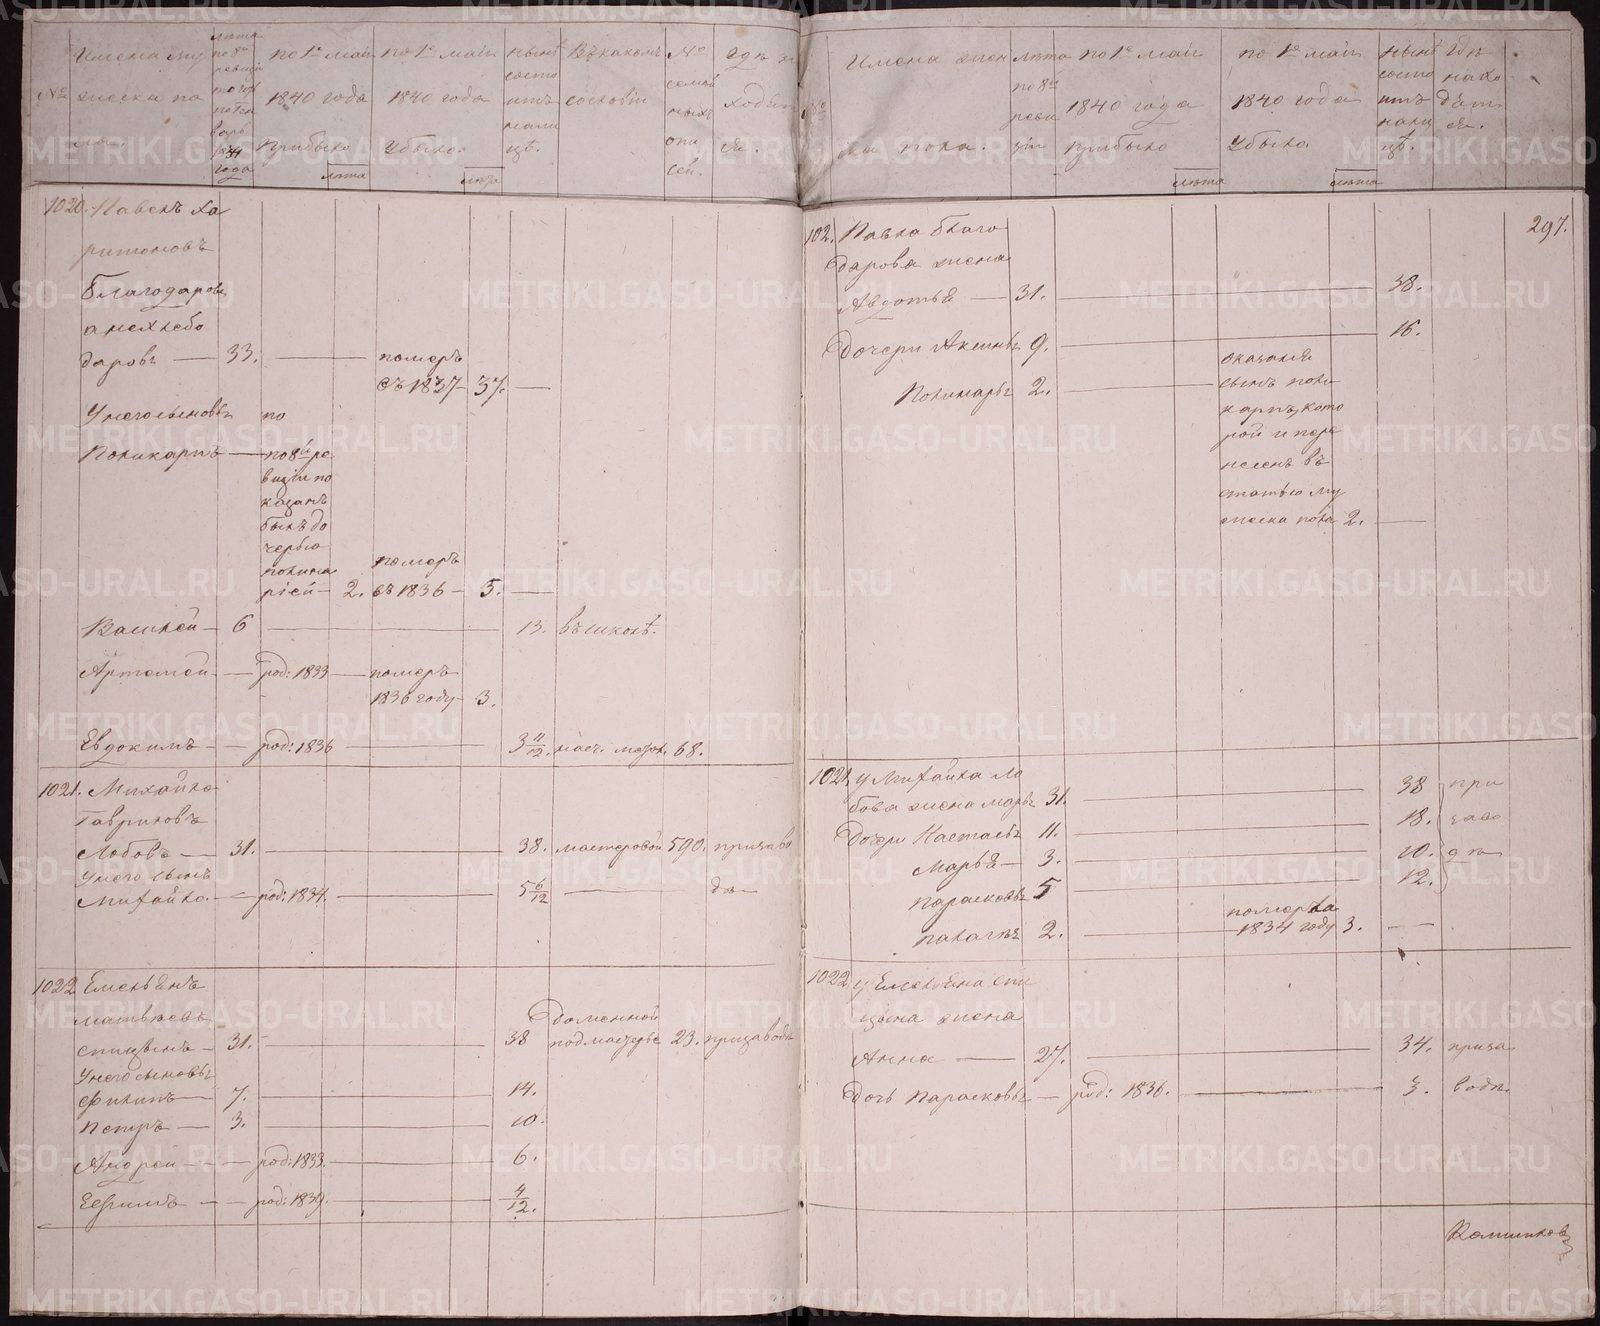 №
Имена му
жеска по
ла.
лѣта
по 8й
ревизіи
1834
года
по 1е маія
1840 года
прибыло
лѣта
по 1е маія
1840 года
убыло.
лѣта
нынѣ
состо
итъ
нали
цѣ.
Въ какомъ
сословіи
№
семей
ныхъ
спи
сей.
гдѣ н
ходит
ся.
1020. Павелъ Ха
ритоновъ
Благодаровъ
а не Хлебо
даровъ — 33. — померъ
въ 1837 — 37. —
У него сыновья по
Поликарпъ — по 8й ре
визіи по
казанъ
былъ до
черью
полина
ріей — 2. померъ
въ 1836 — 5. —
Василей — 6 — 13. въ школѣ.
Артемей — род: 1833 — померъ
1836 году — 3.
Евдокимъ — род: 1836 — 3 11/12. 68.
1021. Михайло
Гавриловъ
Лобовъ — 31. — 38. мастеровой 590. при заво
У него сынъ
Михайло. — род: 1834. — 5 6/12 — дѣ
1022 Емельянъ
Матвѣевъ
Спицынъ — 31. — 38 Доменной
подмастерье 23. при заводѣ
У него сыновья
Филипъ — 7. — 14.
Петръ — 3. — 10.
Андрей — род: 1833. — 6.
Ефимъ — род: 1839. — 4/12.
№
Имена жен
ска пола.
лѣта
по 8й
реви
зіи
по 1е маія
1840 года
прибыло
лѣта
по 1е маія
1840 года
Убыло.
лѣта
нынѣ
состо
итъ
нали
цѣ.
Гдѣ
нахо
дит
ся.
297.
102. Павла Благо
дарова жена
Авдотья — 31. — 38.
Дочери Аксинья 9. — 16.
Полинарья 2. — оказался
сынъ поли
карпъ, кото
рой и пере
несенъ въ
статью му
жеска пола 2. —
1021. у Михайла Ло
бова жена Марья 31. — 38 при
Дочери Настасья 11. — 18. заво
Марья — 3. — 10. дѣ
Парасковья 5 — 12.
Палагѣя 2. — померла
1834 году 3. —
1022 у Емельяна Спи
цына жена
Анна — 27. — 34. при за
Дочь Парасковья — род: 1836. — 3. водѣ.